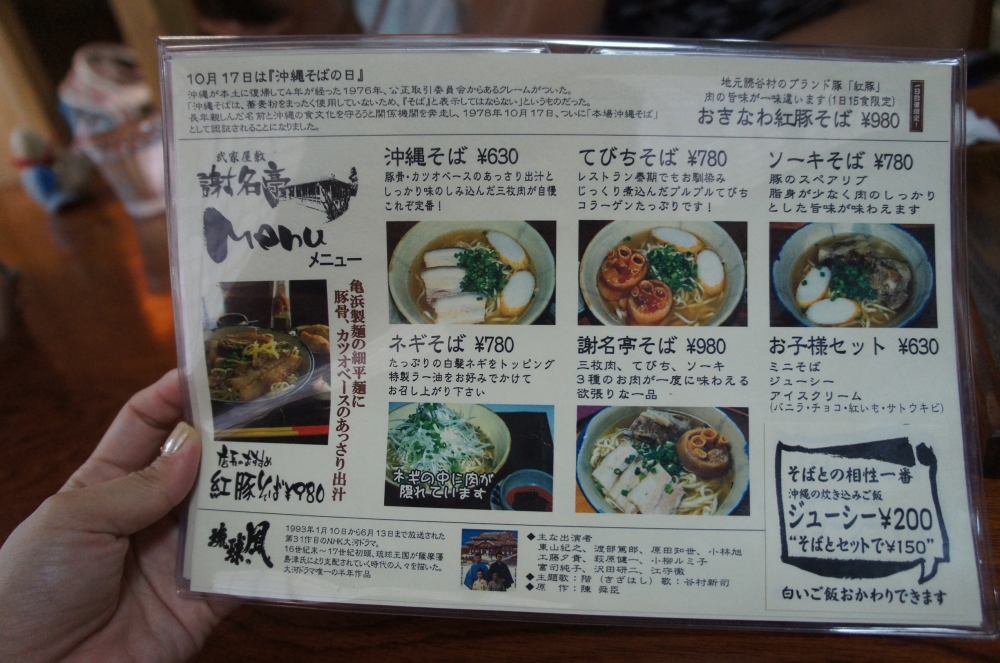 10月17日は『沖縄そばの日』
沖縄が本土に復帰して4年が経った1976年、公正取引委員会からあるクレームがついた。
「沖縄そばは、蕎麦粉をまったく使用していないため、『そば』と表示してはならない」というものだった。
長年親しんだ名前と沖縄の食文化を守ろうと関係機関を奔走し、1978年10月17日、ついに「本場沖縄そば」
として認証されることになりました。
地元読谷村のブランド豚「紅豚」
肉の旨味が一味違います(1日15食限定)
おきなわ紅豚そば ¥980
武家屋敷
謝名亭
Menu
メニュー
亀浜製麺の細平麺に
豚骨、カツオベースのあっさり出汁
店長のおすすめ
紅豚そば¥980
沖縄そば ¥630
豚骨・カツオベースのあっさり出汁と
しっかり味のしみ込んだ三枚肉が自慢
これぞ定番!
てびちそば ¥780
レストラン泰期でもお馴染み
じっくり煮込んだプルプルてびち
コラーゲンたっぷりです!
ソーキそば ¥780
豚のスペアリブ
脂身が少なく肉のしっかり
とした旨味が味わえます
ネギそば ¥780
たっぷりの白髪ネギをトッピング
特製ラー油をお好みでかけて
お召し上がり下さい
ネギの中に肉が
隠れています
謝名亭そば ¥980
三枚肉、てびち、ソーキ
3種のお肉が一度に味わえる
欲張りな一品
お子様セット ¥630
ミニそば
ジューシー
アイスクリーム
(バニラ・チョコ・紅いも・サトウキビ)
そばとの相性一番
沖縄の炊き込みご飯
ジューシー¥200
“そばとセットで¥150”
白いご飯おかわりできます
琉球の風
1993年1月10日から6月13日まで放送された
第31作目のNHK大河ドラマ。
16世紀末~17世紀初頭、琉球王国が薩摩藩
島津氏により支配されていく時代の人々を描いた。
大河ドラマ唯一の半年作品
◆主な出演者
東山紀之、渡部篤郎、原田知世、小林旭
工藤夕貴、萩原健一、小柳ルミ子
富司純子、沢田研二、江守徹
◆主題歌:階(きざはし)歌:谷村新司
◆原 作:陳 舜臣